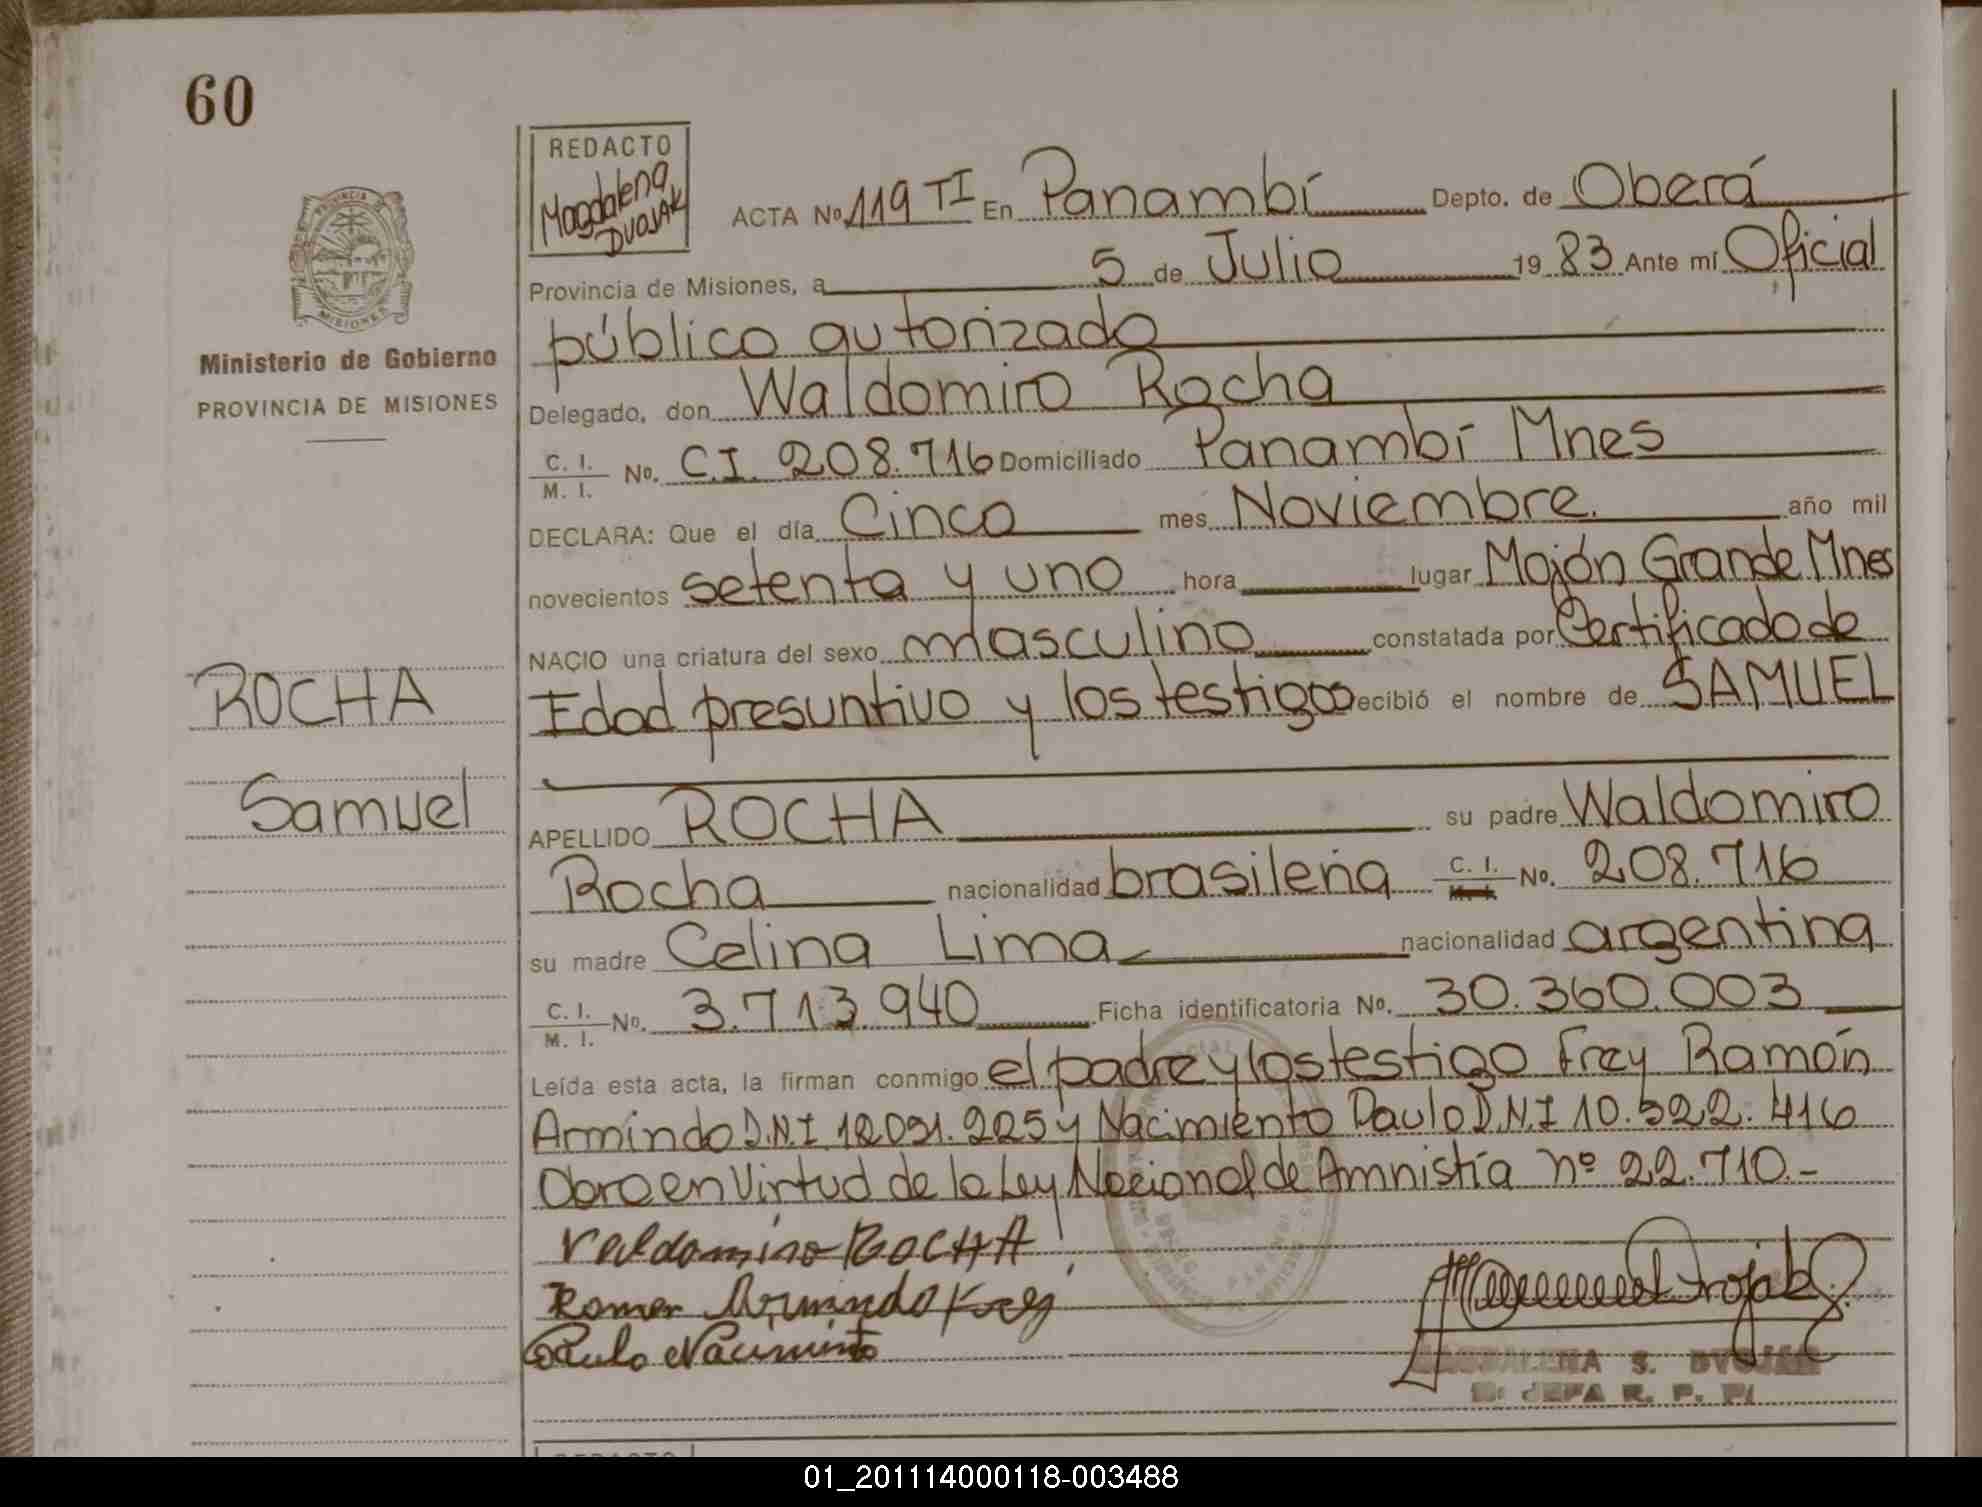 60
REDACTO
Magdalena
DVOJAK
ACTA No. 119 TI En Panambí Depto. de Oberá
Provincia de Misiones, a 5 de Julio 19 83 Ante mí Oficial
público autorizado
PROVINCIA
MISIONES
Ministerio de Gobierno
PROVINCIA DE MISIONES
Delegado, don Waldomiro Rocha
C. I. M. I. No. C.I. 208.716 Domiciliado Panambí Mnes
DECLARA: Que el día Cinco mes Noviembre. año mil
novecientos setenta y uno hora lugar Mojón Grande Mnes
NACIO una criatura del sexo masculino constatada por Certificado de
Edad presuntivo y los testigos recibió el nombre de SAMUEL
ROCHA
Samuel
APELLIDO ROCHA su padre Waldomiro
Rocha nacionalidad brasileña C. I. No. 208.716
su madre Celina Lima nacionalidad argentina
C. I. M. I. No. 3.713.940 Ficha identificatoria No. 30.360.003
Leída esta acta, la firman conmigo el padre y los testigo Frey Ramón
Armindo D.N.I 12.091.225 y Nacimiento Paulo D.N.I 10.522.416
Obro en Virtud de la Ley Nacional de Amnistía nº 22.710.-
Valdomiro ROCHA
Ramon Armindo Frey
Paulo Nacimiento
MAGDALENA S. DVOJAK
JEFA R. P. P.
REDACTO
01_201114000118-003488